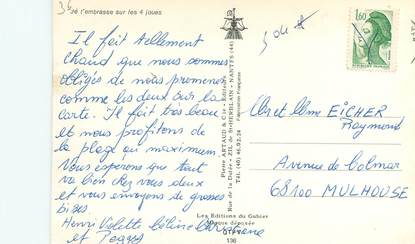 36
"Je t'embrasse sur les 4 joues
Il fait tellement
chaud que nous sommes
obligés de nous promener
comme les deux sur la
carte. Il fait très beau
et nous profitons de
la plage au maximum
Nous espérons que tout
va bien chez vous deux
et vous envoyons de grosses
bises
Henri Violette Céline
et Peggy
Pierre ARTAUD & Cie - Editeurs
Rue de la Dutée - Z.I.L. de St-HERBLAIN - NANTES (44)
Tél. (40) 46.92.24 Fabrication Française
Les Editions du Gabier
Marque déposée
136
1,60
Mr et Mme EICHER
Raymond
Avenue de Colmar
68100 MULHOUSE